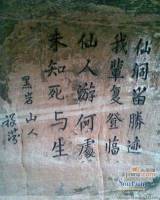 仙洞留勝迹
我辈复登临
仙人游何處
未知死与生
黑岩山人